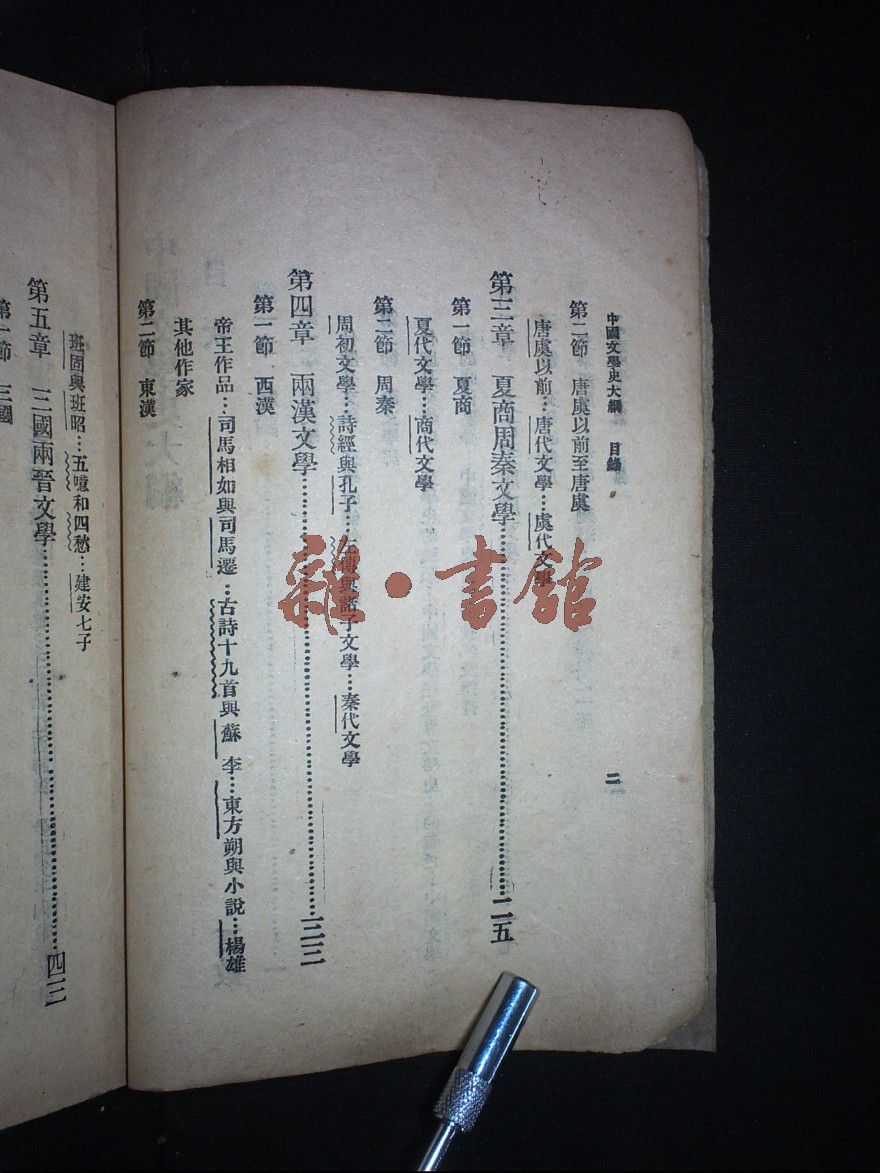 中國文學史大綱 目錄
二
第二節 唐虞以前至唐虞
唐虞以前…唐代文學…虞代文學
第三章 夏商周秦文學……二五
第一節 夏商
夏代文學…商代文學
第二節 周秦
周初文學…詩經與孔子…左傳與諸子文學…秦代文學
第四章 兩漢文學……三三
第一節 西漢
帝王作品…司馬相如與司馬遷…古詩十九首與蘇 李…東方朔與小說…楊雄
其他作家
第二節 東漢
班固與班昭…五噫和四愁…建安七子
第五章 三國兩晉文學……四三
第一節 三國
雜·書館